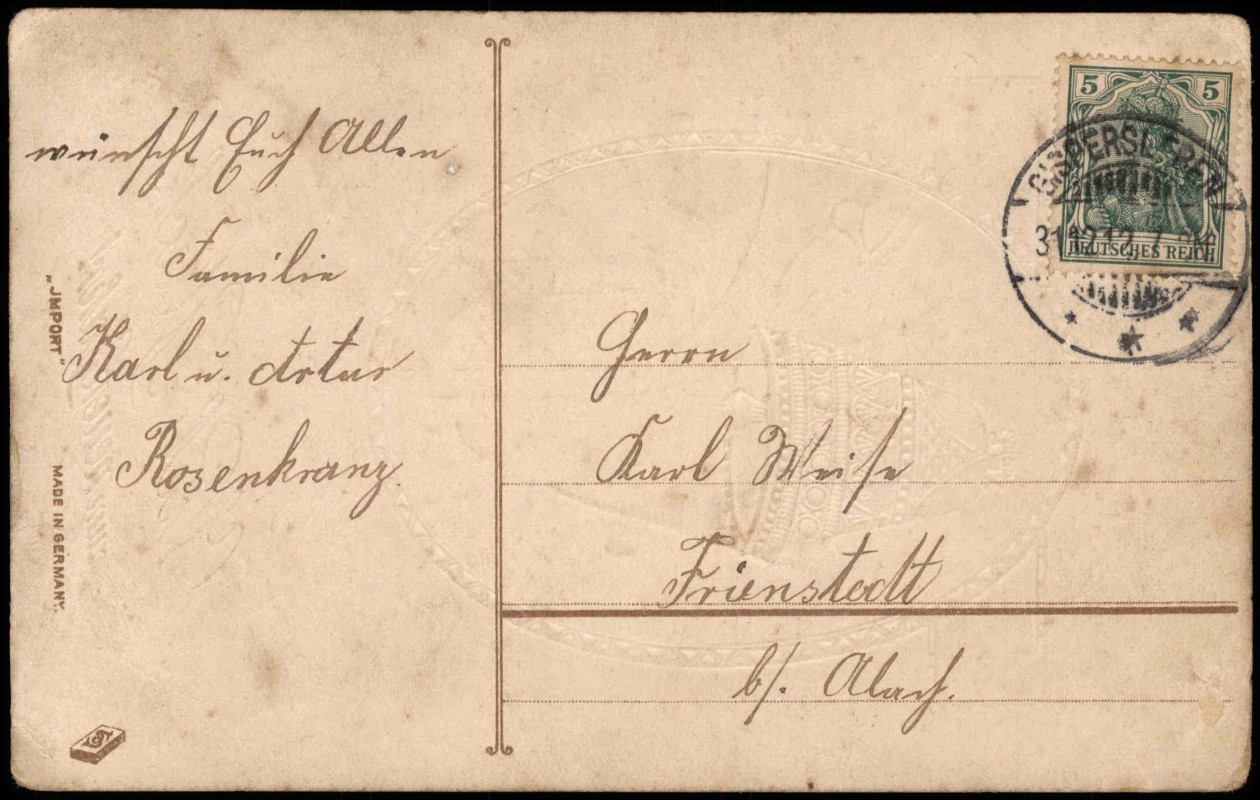 wünscht Euch Allen
Familie
Karl u. Artur
Rosenkranz.
"IMPORT"
MADE IN GERMANY.
5 5
DEUTSCHES REICH
GISPERSLEBEN
31.12.12.7-8N
Herrn
Karl Weise
Frienstedt
b/. Alach.